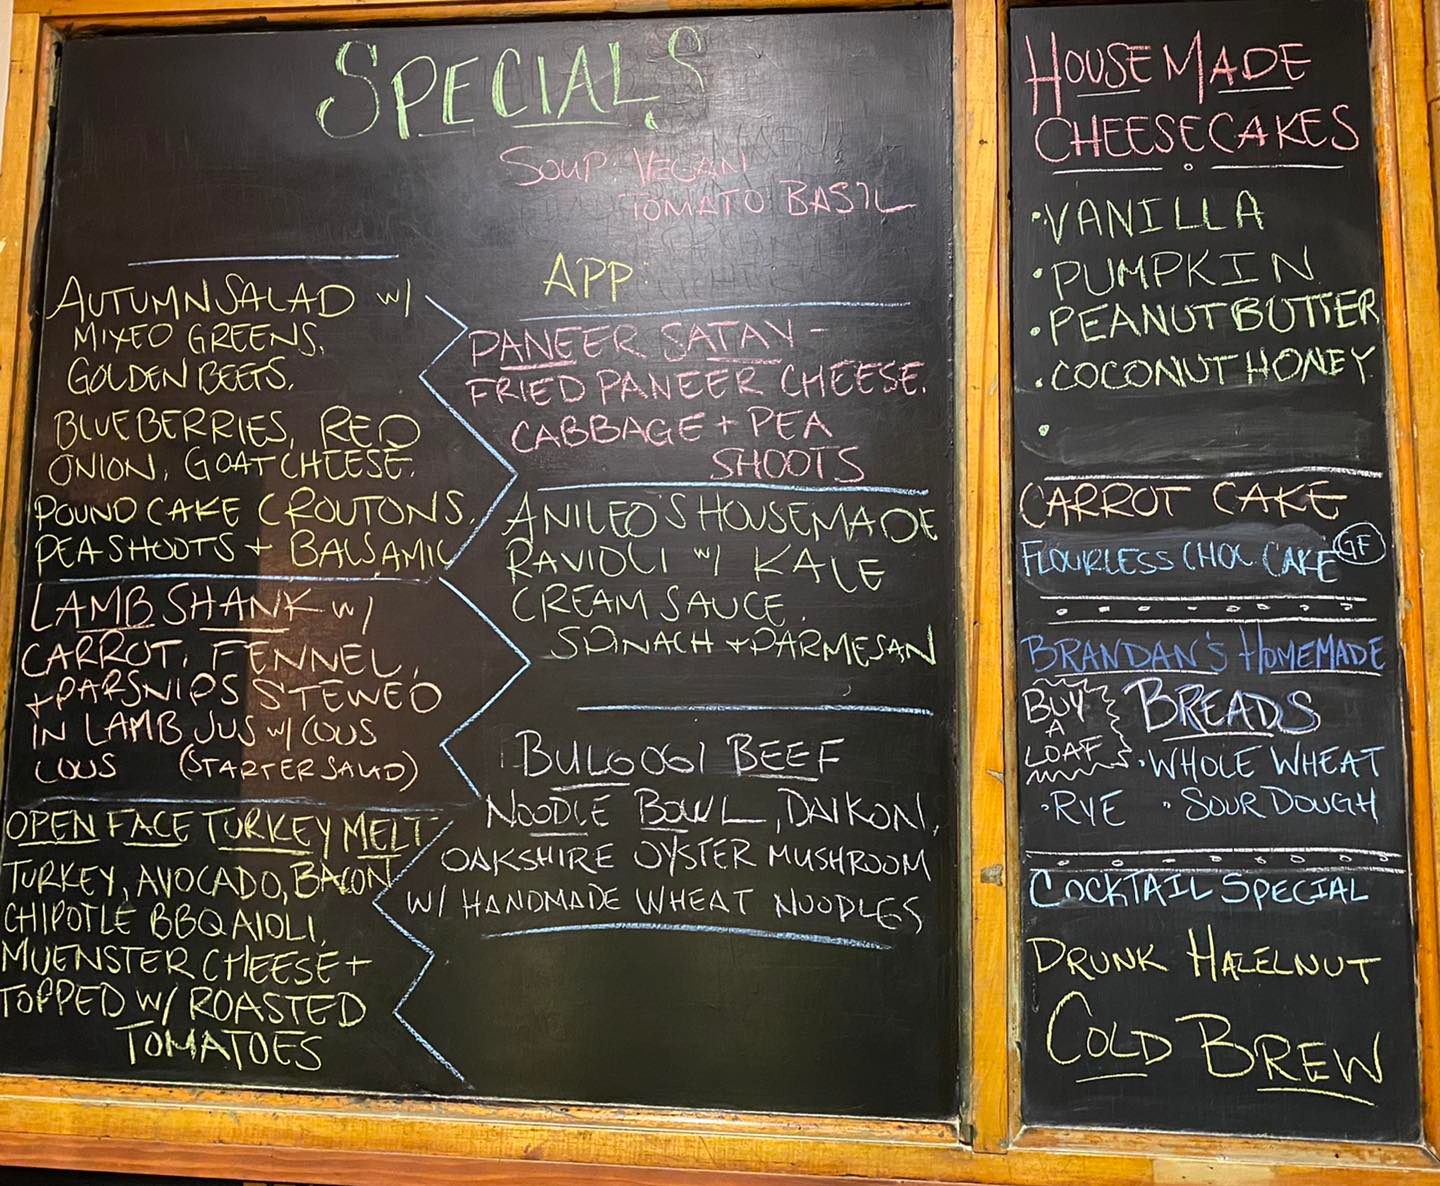 SPECIALS
SOUP: VEGAN
TOMATO BASIL
AUTUMN SALAD W/
MIXED GREENS,
GOLDEN BEETS,
BLUEBERRIES, RED
ONION, GOAT CHEESE,
POUND CAKE CROUTONS,
PEA SHOOTS + BALSAMIC
LAMB SHANK W/
CARROT, FENNEL,
+ PARSNIPS STEWED
IN LAMB JUS W/ COUS
COUS (STARTER SALAD)
OPEN FACE TURKEY MELT
TURKEY, AVOCADO, BACON
CHIPOTLE BBQ AIOLI,
MUENSTER CHEESE +
TOPPED W/ ROASTED
TOMATOES
APP:
PANEER SATAY -
FRIED PANEER CHEESE,
CABBAGE + PEA
SHOOTS
ANILEO'S HOUSEMADE
RAVIOLI W/ KALE
CREAM SAUCE,
SPINACH + PARMESAN
BULGOGI BEEF
NOODLE BOWL, DAIKON,
OAKSHIRE OYSTER MUSHROOM
W/ HANDMADE WHEAT NOODLES
HOUSEMADE
CHEESECAKES
• VANILLA
• PUMPKIN
• PEANUT BUTTER
• COCONUT HONEY
•
CARROT CAKE
FLOURLESS CHOC CAKE GF
BRANDAN'S HOMEMADE
BREADS
BUY
A
LOAF
• WHOLE WHEAT
• RYE • SOURDOUGH
COCKTAIL SPECIAL
DRUNK HAZELNUT
COLD BREW